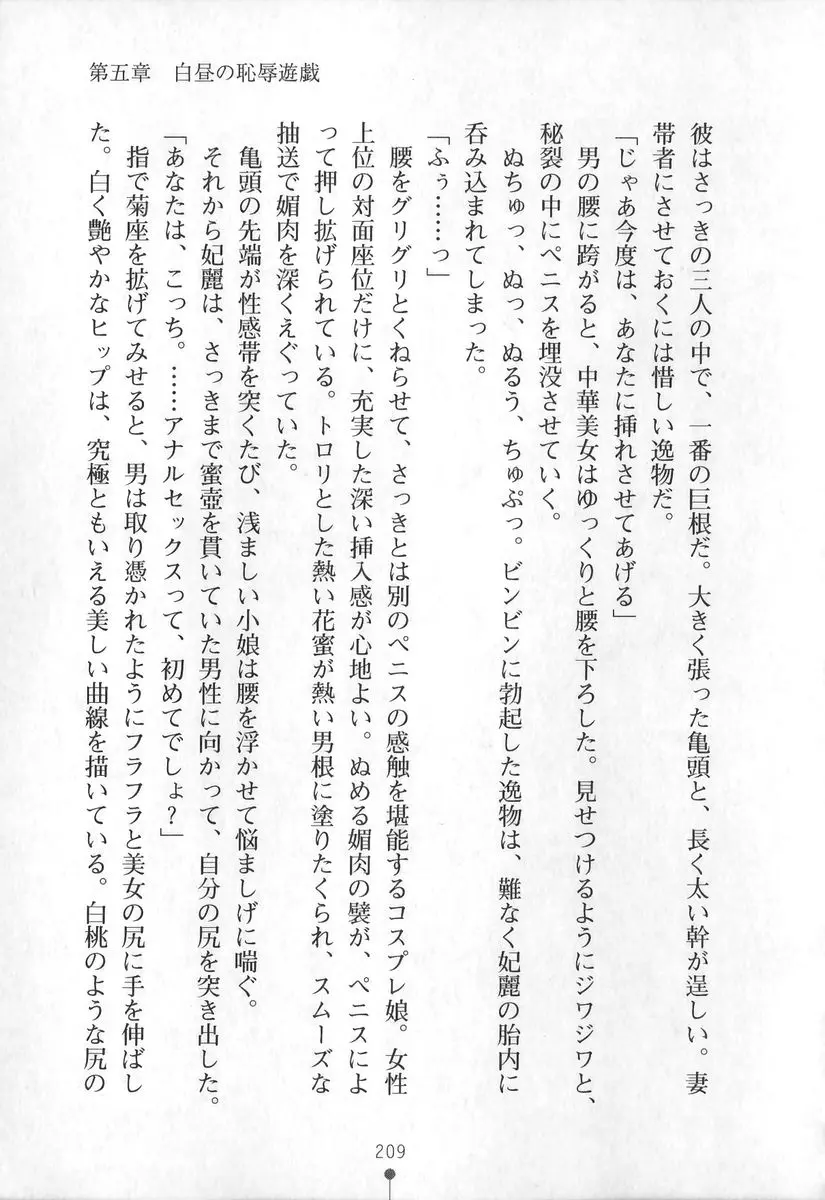 第五章　白昼の恥辱遊戯
彼はさっきの三人の中で、一番の巨根だ。大きく張った亀頭と、長く太い幹が逞しい。妻
帯者にさせておくには惜しい逸物だ。
「じゃあ今度は、あなたに挿れさせてあげる」
男の腰に跨がると、中華美女はゆっくりと腰を下ろした。見せつけるようにジワジワと、
秘裂の中にペニスを埋没させていく。
ぬちゅっ、ぬっ、ぬるう、ちゅぷっ。ビンビンに勃起した逸物は、難なく妃麗の胎内に
呑み込まれてしまった。
「ふぅ……っ」
腰をグリグリとくねらせて、さっきとは別のペニスの感触を堪能するコスプレ娘。女性
上位の対面座位だけに、充実した深い挿入感が心地よい。ぬめる媚肉の襞が、ペニスによ
って押し拡げられている。トロリとした熱い花蜜が熱い男根に塗りたくられ、スムーズな
抽送で媚肉を深くえぐっていた。
亀頭の先端が性感帯を突くたび、浅ましい小娘は腰を浮かせて悩ましげに喘ぐ。
それから妃麗は、さっきまで蜜壺を貫いていた男性に向かって、自分の尻を突き出した。
「あなたは、こっち。……アナルセックスって、初めてでしょ？」
指で菊座を拡げてみせると、男は取り憑かれたようにフラフラと美女の尻に手を伸ばし
た。白く艶やかなヒップは、究極ともいえる美しい曲線を描いている。白桃のような尻の
209